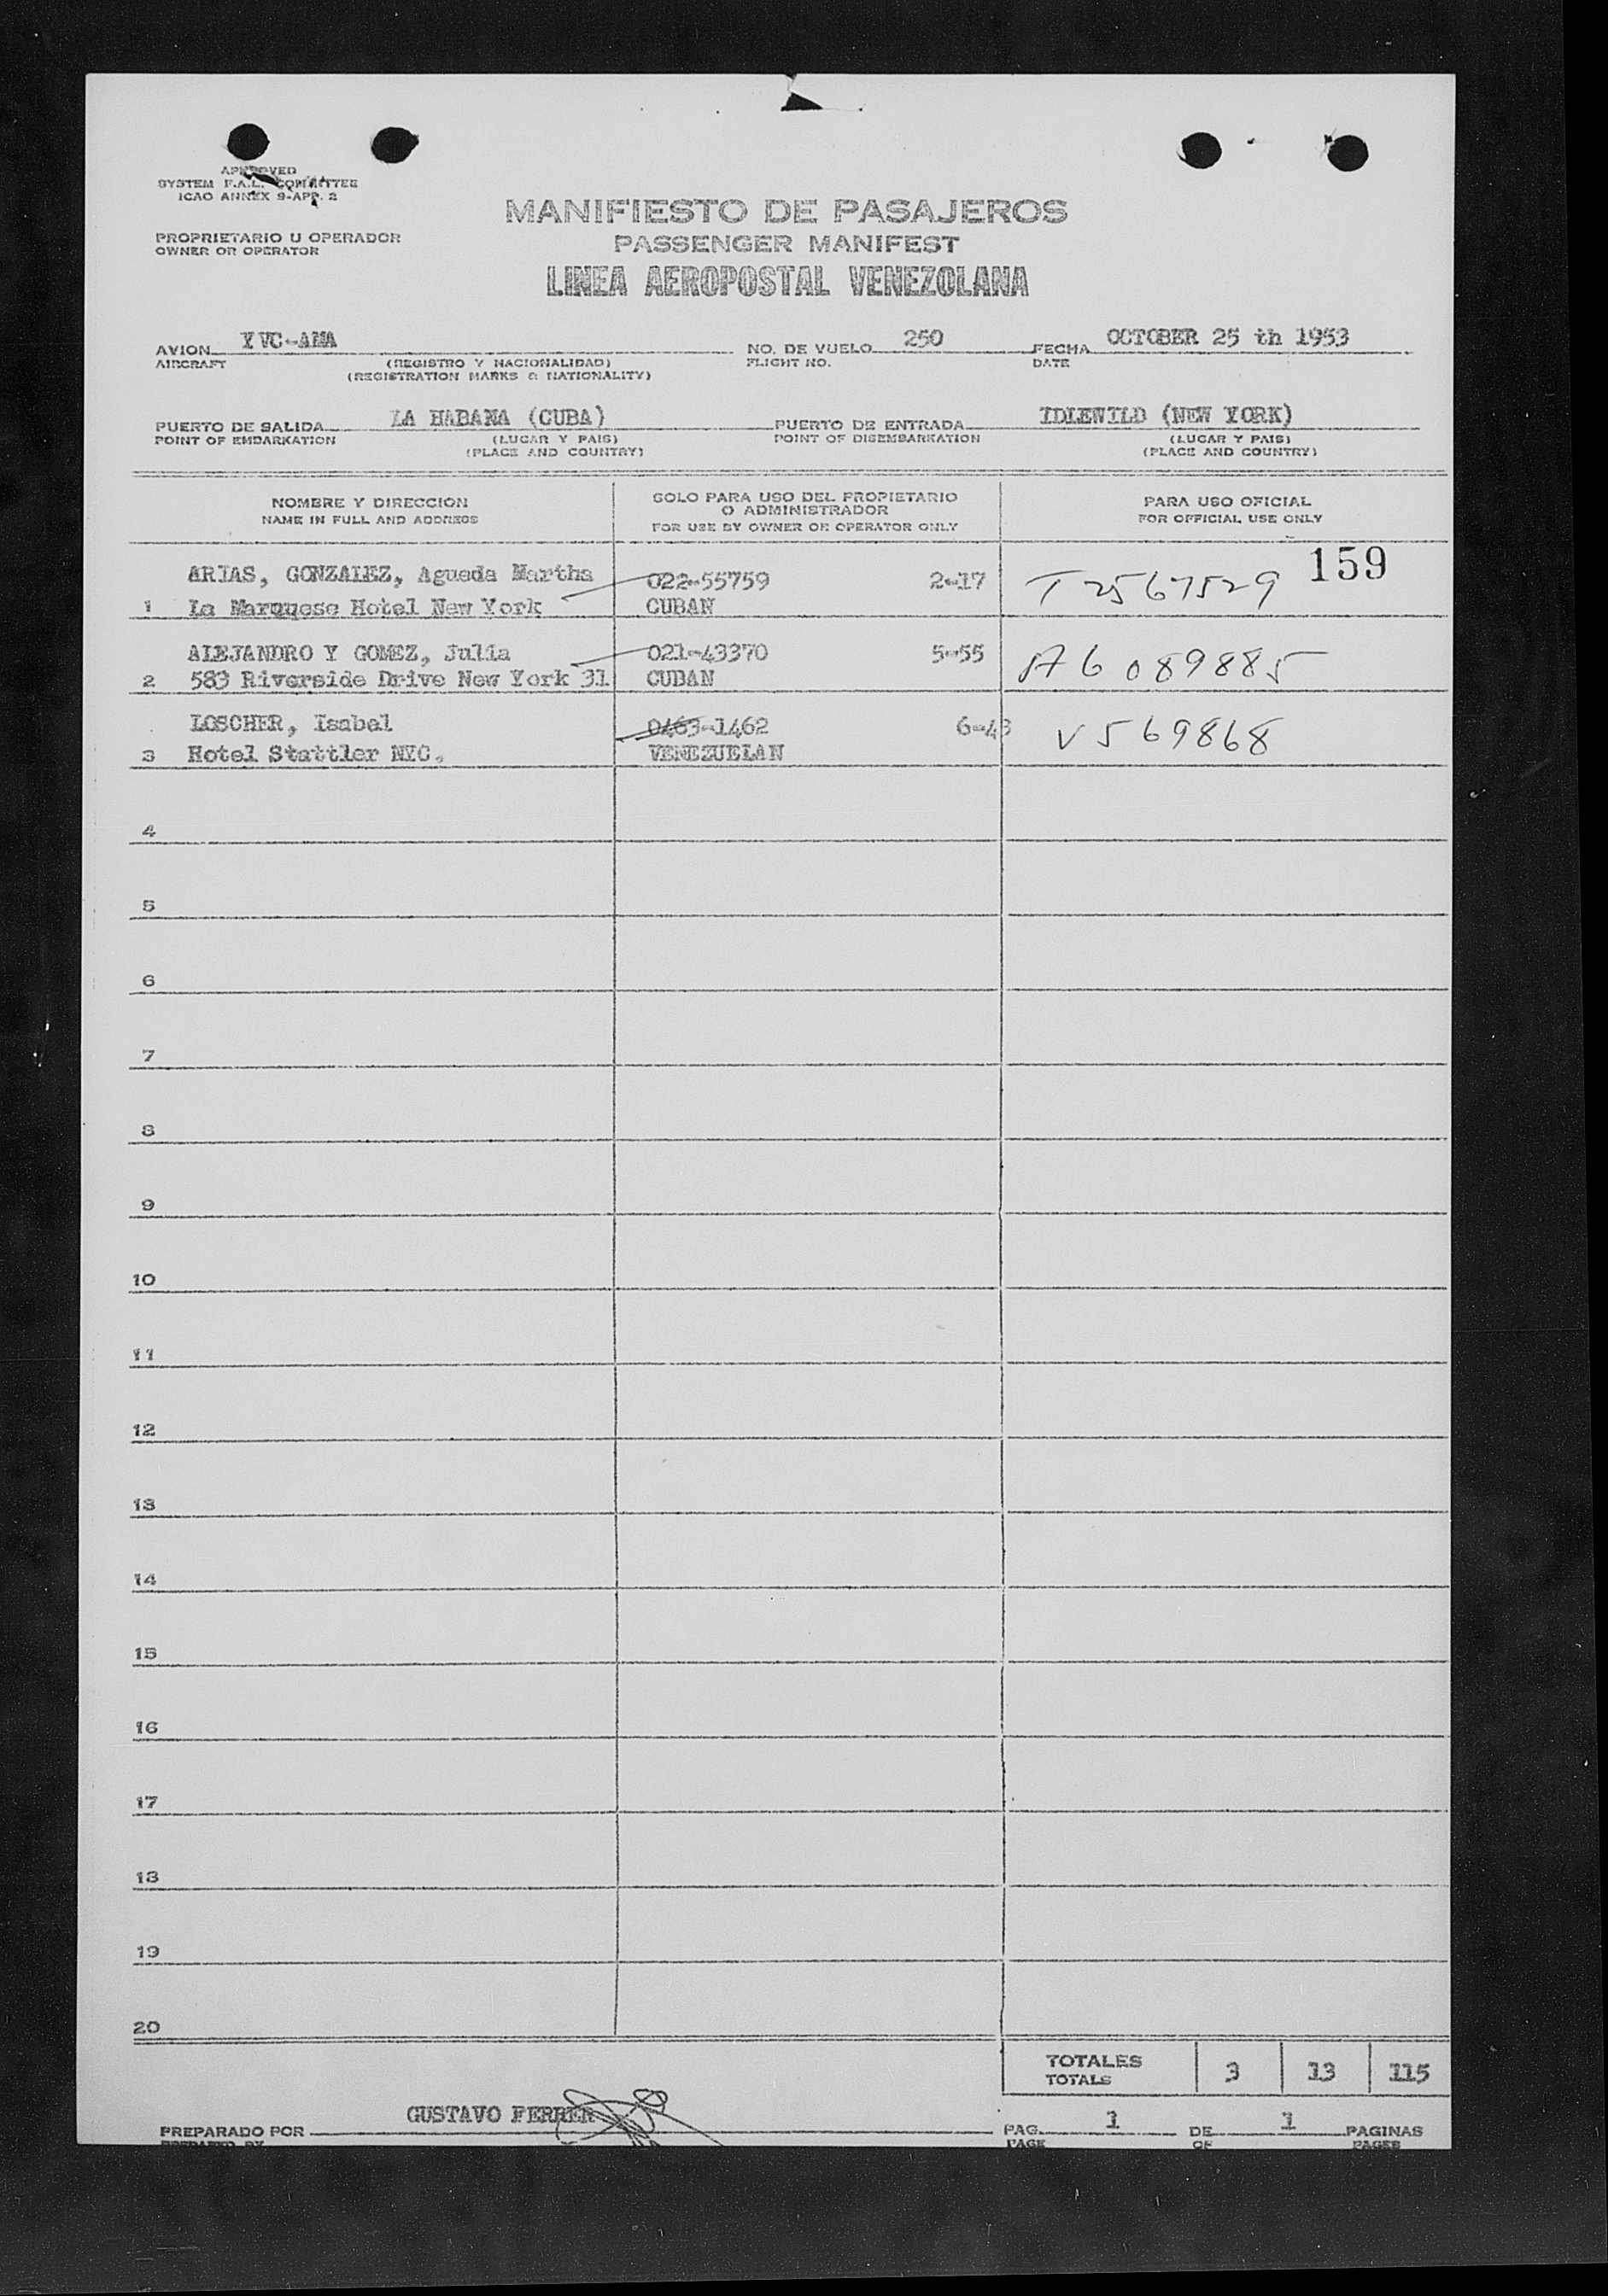 APPROVED
SYSTEM F.A.L. COMMITTEE
ICAO ANNEX 9-APP. 2
MANIFIESTO DE PASAJEROS
PROPRIETARIO U OPERADOR
OWNER OR OPERATOR
PASSENGER MANIFEST
LINEA AEROPOSTAL VENEZOLANA
AVION YVC-AMA NO. DE VUELO 250 FECHA OCTOBER 25 th 1953
AIRCRAFT (REGISTRO Y NACIONALIDAD) FLIGHT NO. DATE
(REGISTRATION MARKS & NATIONALITY)
PUERTO DE SALIDA LA HABANA (CUBA) PUERTO DE ENTRADA IDLEWILD (NEW YORK)
POINT OF EMBARKATION (LUGAR Y PAIS) POINT OF DISEMBARKATION (LUGAR Y PAIS)
(PLACE AND COUNTRY) (PLACE AND COUNTRY)
NOMBRE Y DIRECCION
NAME IN FULL AND ADDRESS
SOLO PARA USO DEL PROPIETARIO
O ADMINISTRADOR
FOR USE BY OWNER OR OPERATOR ONLY
PARA USO OFICIAL
FOR OFFICIAL USE ONLY
159
ARIAS, GONZALEZ, Agueda Martha 022-55759 2-17 T2567529
1 La Marquese Hotel New York CUBAN
ALEJANDRO Y GOMEZ, Julia 021-43370 5-55 A6 089885
2 583 Riverside Drive New York 31 CUBAN
LOSCHER, Isabel 0463-1462 6-43 V569868
3 Hotel Stattler NYC. VENEZUELAN
4
5
6
7
8
9
10
11
12
13
14
15
16
17
18
19
20
TOTALES 3 13 115
TOTALS
PREPARADO POR GUSTAVO FERRER PAG. 1 DE 1 PAGINAS
PREPARED BY PAGE OF PAGES